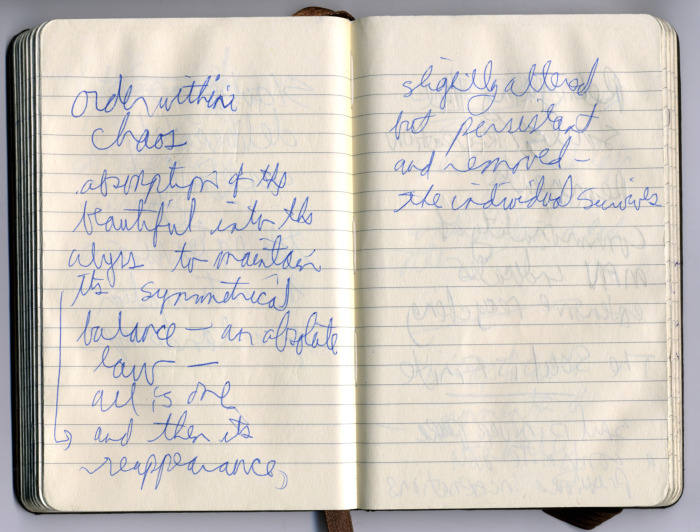 order within
chaos
absorption of the
beautiful into the
abyss to maintain
its symmetrical
balance — an absolute
law —
all is one
and then its
reappearance,
slightly altered
but persistant
and removed —
the individual survives